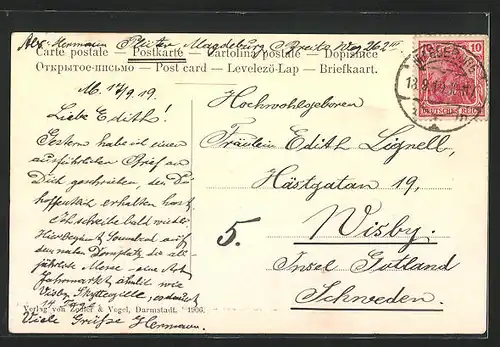 Abs. Hermann Pfeifer Magdeburg Breite Weg 262 III
Carte postale — Postkarte — Cartolina postale — Dopisnice
Открытое-письмо — Post card — Levelező-Lap — Briefkaart.
M. 17/9.19.
Liebe Edith!
Gestern habe ich einen
ausführlichen Brief an
Dich geschrieben, den Du
hoffentlich erhalten hast.
Ich schreibe bald wieder
Hier beginnt Sonnabend auf
dem neuen Domplatz die all-
jährliche Messe - eine Art
Jahrmarkt ähnlich wie
Visby
Viele Grüße Hermann.
Verlag von Zedler & Vogel, Darmstadt. 1906.
Hochwohlgeboren
Fräulein Edith Lignell,
Hästgatan 19,
5.
Wisby.
Insel Gotland
Schweden.
10
DEUTSCHES REICH
MAGDEBURG